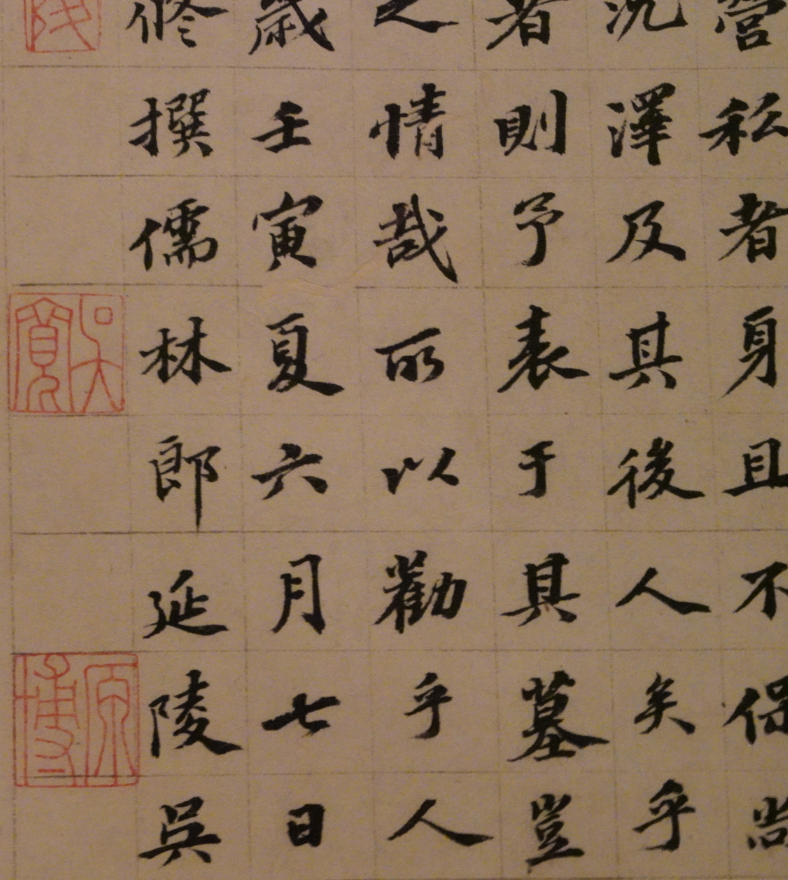 營私者身且不保尚
沉澤及其後人矣乎
者則予表于其墓豈
之情哉所以勸乎人
歳壬寅夏六月七日
修撰儒林郎延陵吳
吳寬
原博